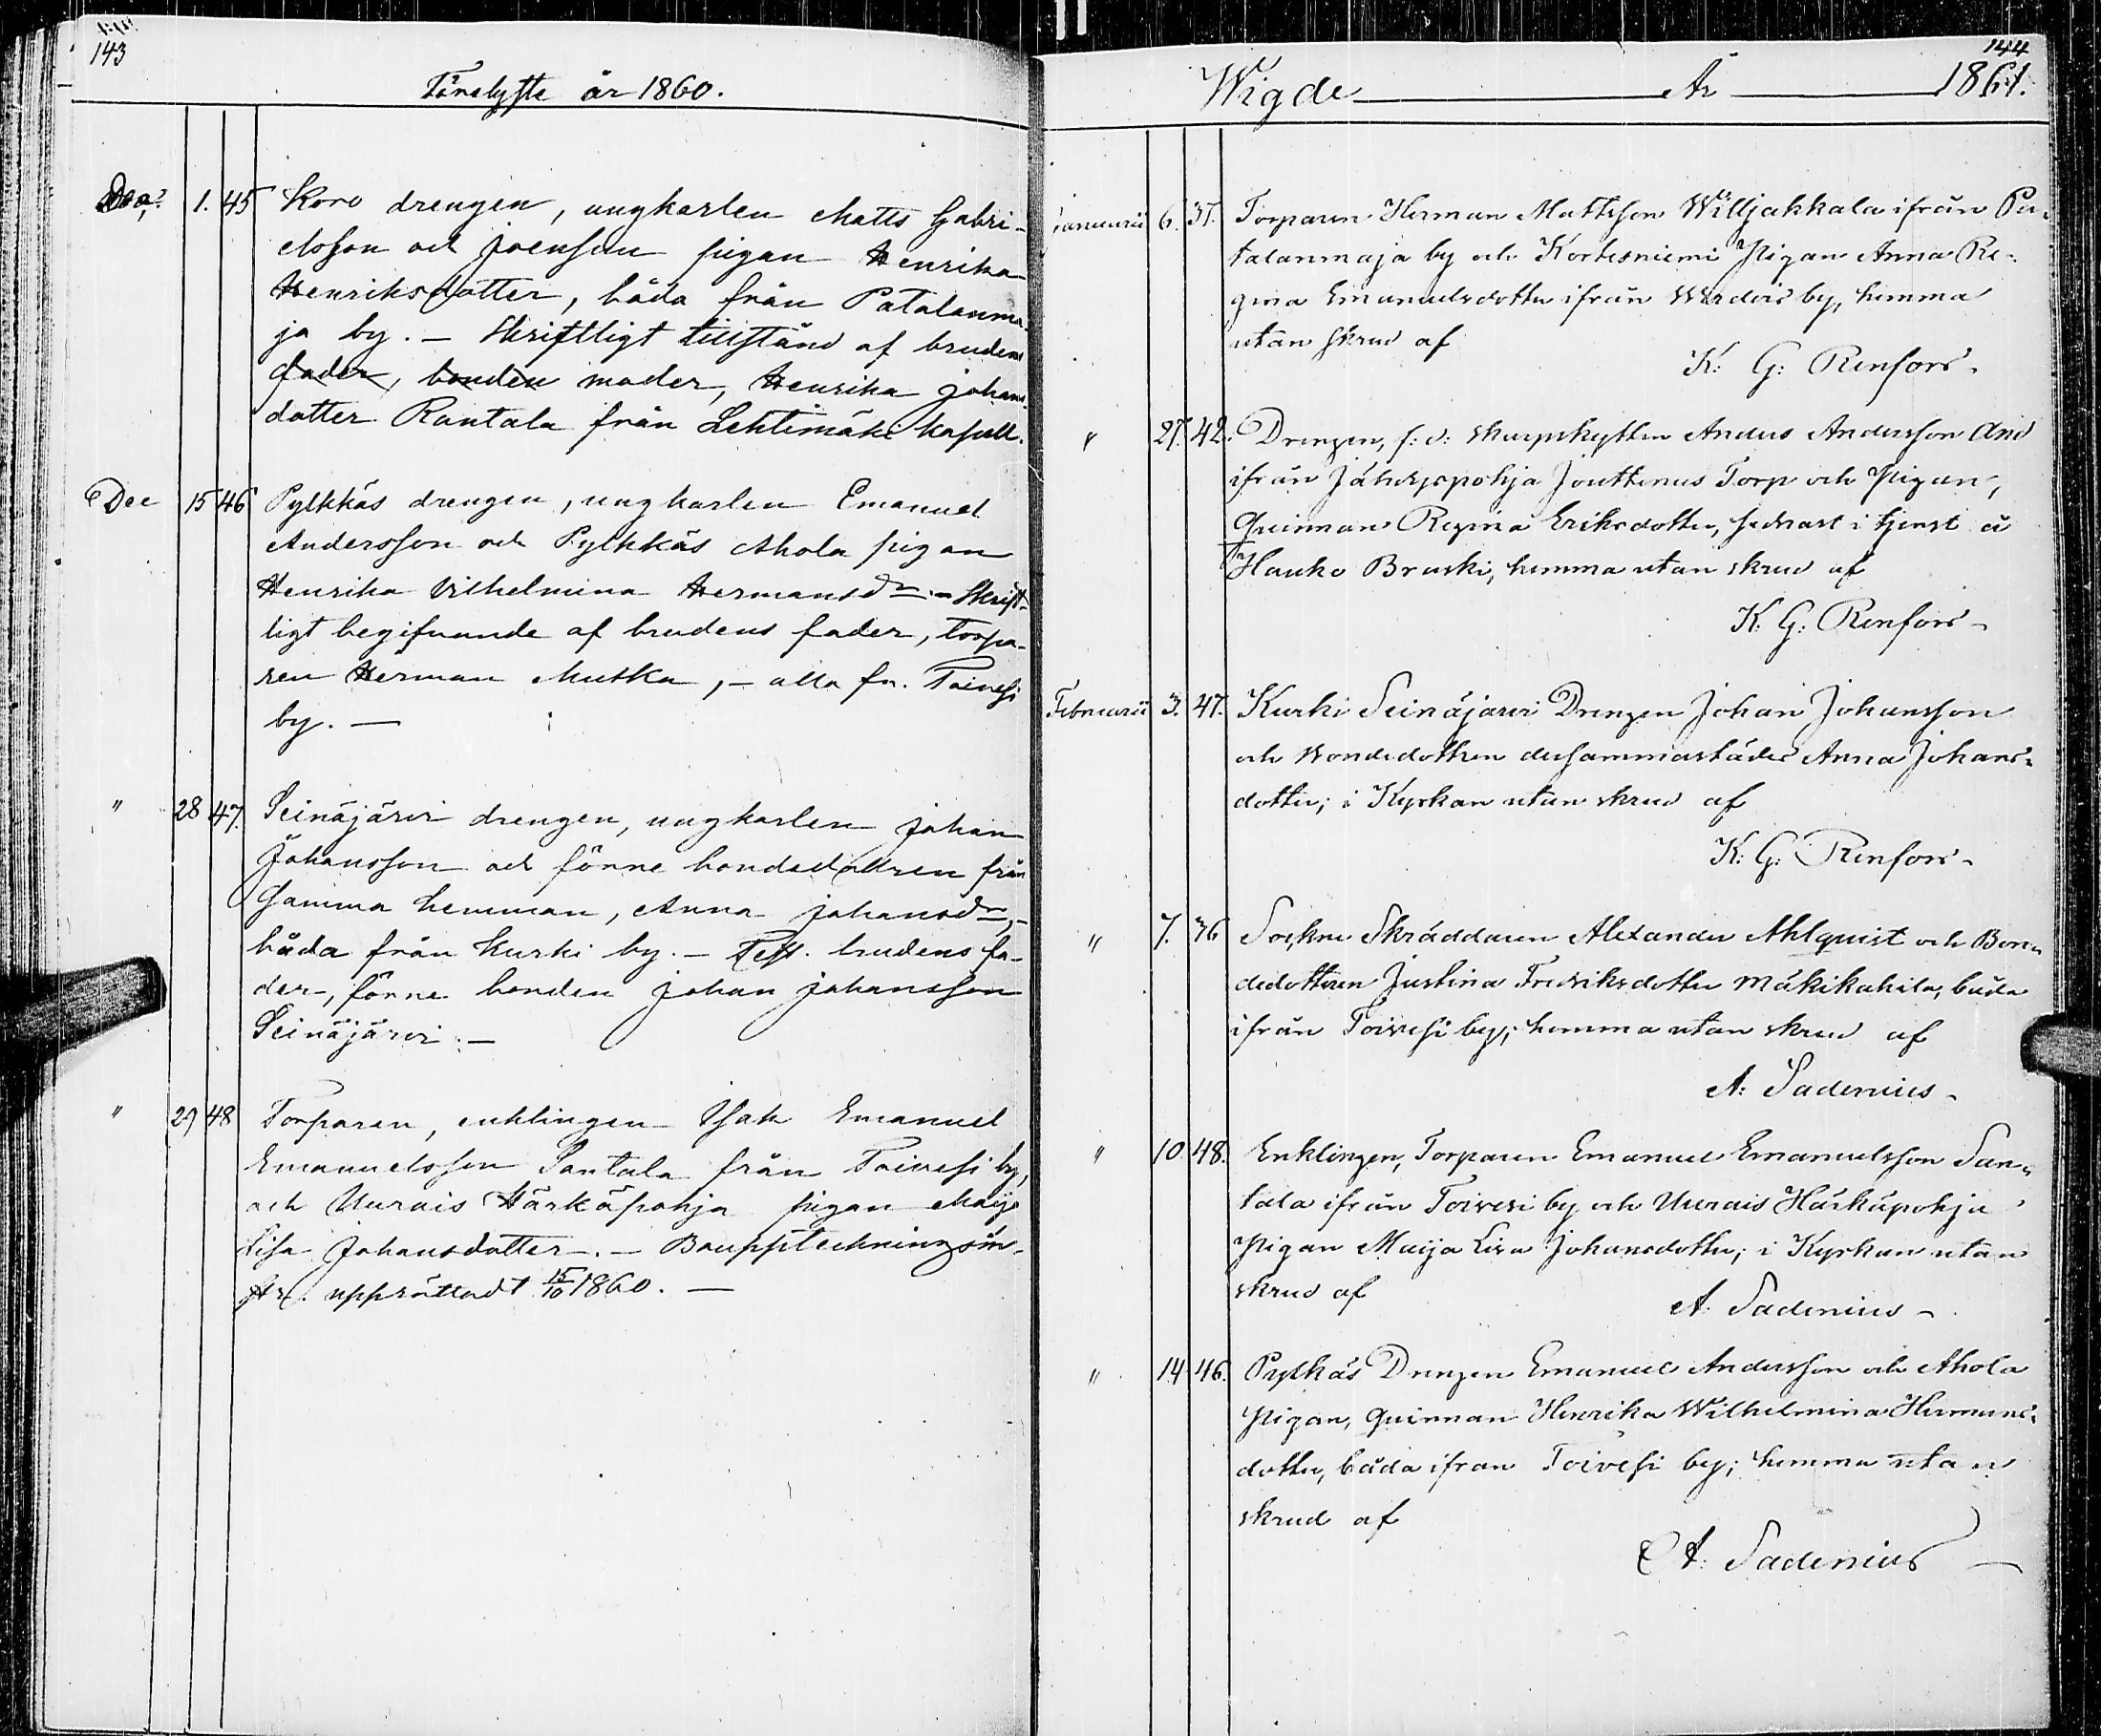 143
Förelyste år 1860.
Dec. 1. 45 Koro drengen, ungkarlen Matts Gabri-
elsson och Joensuu pigan Henrika
Henriksdotter, båda från Patalanma-
ja by. – Skriftligt tillstånd af brudens
fader, bonden moder, Henrika Johans-
dotter Rantala från Lehtimäki kapell.
Dec 15 46 Pylkkäs drengen, ungkarlen Emanuel
Andersson och Pylkkäs Ahola pigan
Henrika Vilhelmina Hermansdr. – Skrift-
ligt begifvande af brudens fader, torpa-
ren Herman Mutka, – alla fr. Toivesi
by. –
" 28 47. Seinäjärvi drengen, ungkarlen Johan
Johansson och förre bondedottren från
samma hemman, Anna Johansdr, –
båda från Kurki by. – Test. brudens fa-
der, förre bonden Johan Johansson
Seinäjärvi. –
" 29 48 Torparen, enklingen Isak Emanuel
Emanuelsson Santala från Toivesi by,
och Uurais Härkäpohja pigan Maija
Lisa Johansdotter. – Bouppteckningsin-
str. upprättadt 15/10 1860. –
144
Wigde År 1861.
Januarii 6. 31. Torparen Herman Mattsson Williakkala ifrån Pa-
talanmaja by och Kortesniemi Pigan Anna Re-
gina Emanuelsdotter ifrån Wirdois by, hemma
utan skrud af
K: G: Renfors.
" 27. 42. Drengen, f: d: skarpskytten Anders Andersson And
ifrån Jouttenus Torp och Pigan,
Quinnan Regina Eriksdotter, sednast i tjenst å
Hauko Bruski, hemma utan skrud af
K: G: Renfors –
Februarii 3. 47. Kurki Seinäjärvi Drengen Johan Johansson
och Bondedottren dersammastädes Anna Johans-
dotter; i Kyrkan utan skrud af
K: G: Renfors –
" 7. 36 Sockne Skräddaren Alexander Ahlquist och Bon-
dedottren Justina Fredriksdotter Mäkikakila, båda
ifrån Toivesi by; hemma utan skrud af
A: Sadenius –
" 10. 48. Enklingen, Torparen Emanuel Emanuelsson San-
tala ifrån Toivesi by och Uurais Härkäpohja
Pigan Maija Lisa Johansdotter; i Kyrkan utan
skrud af
A: Sadenius –
" 14. 46. Pylkäs Drengen Emanuel Andersson och Ahola
Pigan, Quinnan Henrika Wilhelmina Hermans-
dotter, båda ifrån Toivesi by; hemma utan
skrud af
A: Sadenius –